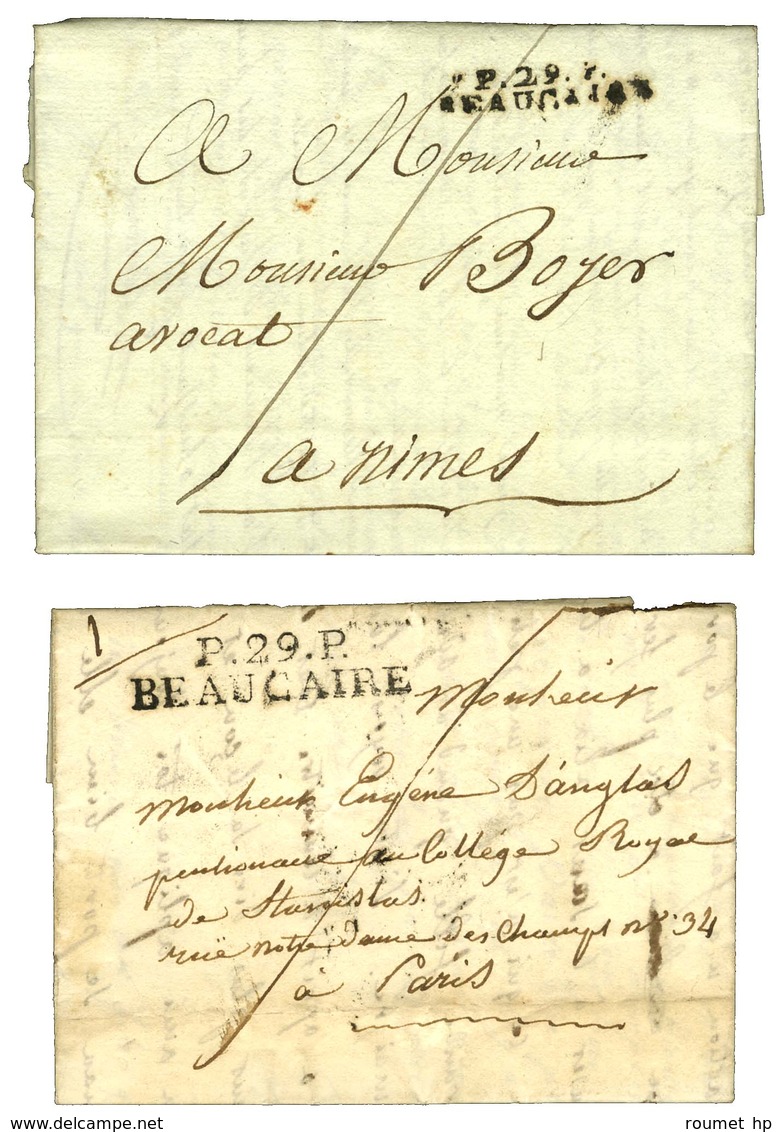 P.29.P.
BEAUCAIRE
A Monsieur
Monsieur Boyer
avocat
a nimes
1
P.29.P.
BEAUCAIRE
Monsieur
Monsieur Eugéne D'anglas
pensionaire au Collége Royal
de Stanislas.
ruë notre dame des Champs n.° 34
à Paris
roumet hp